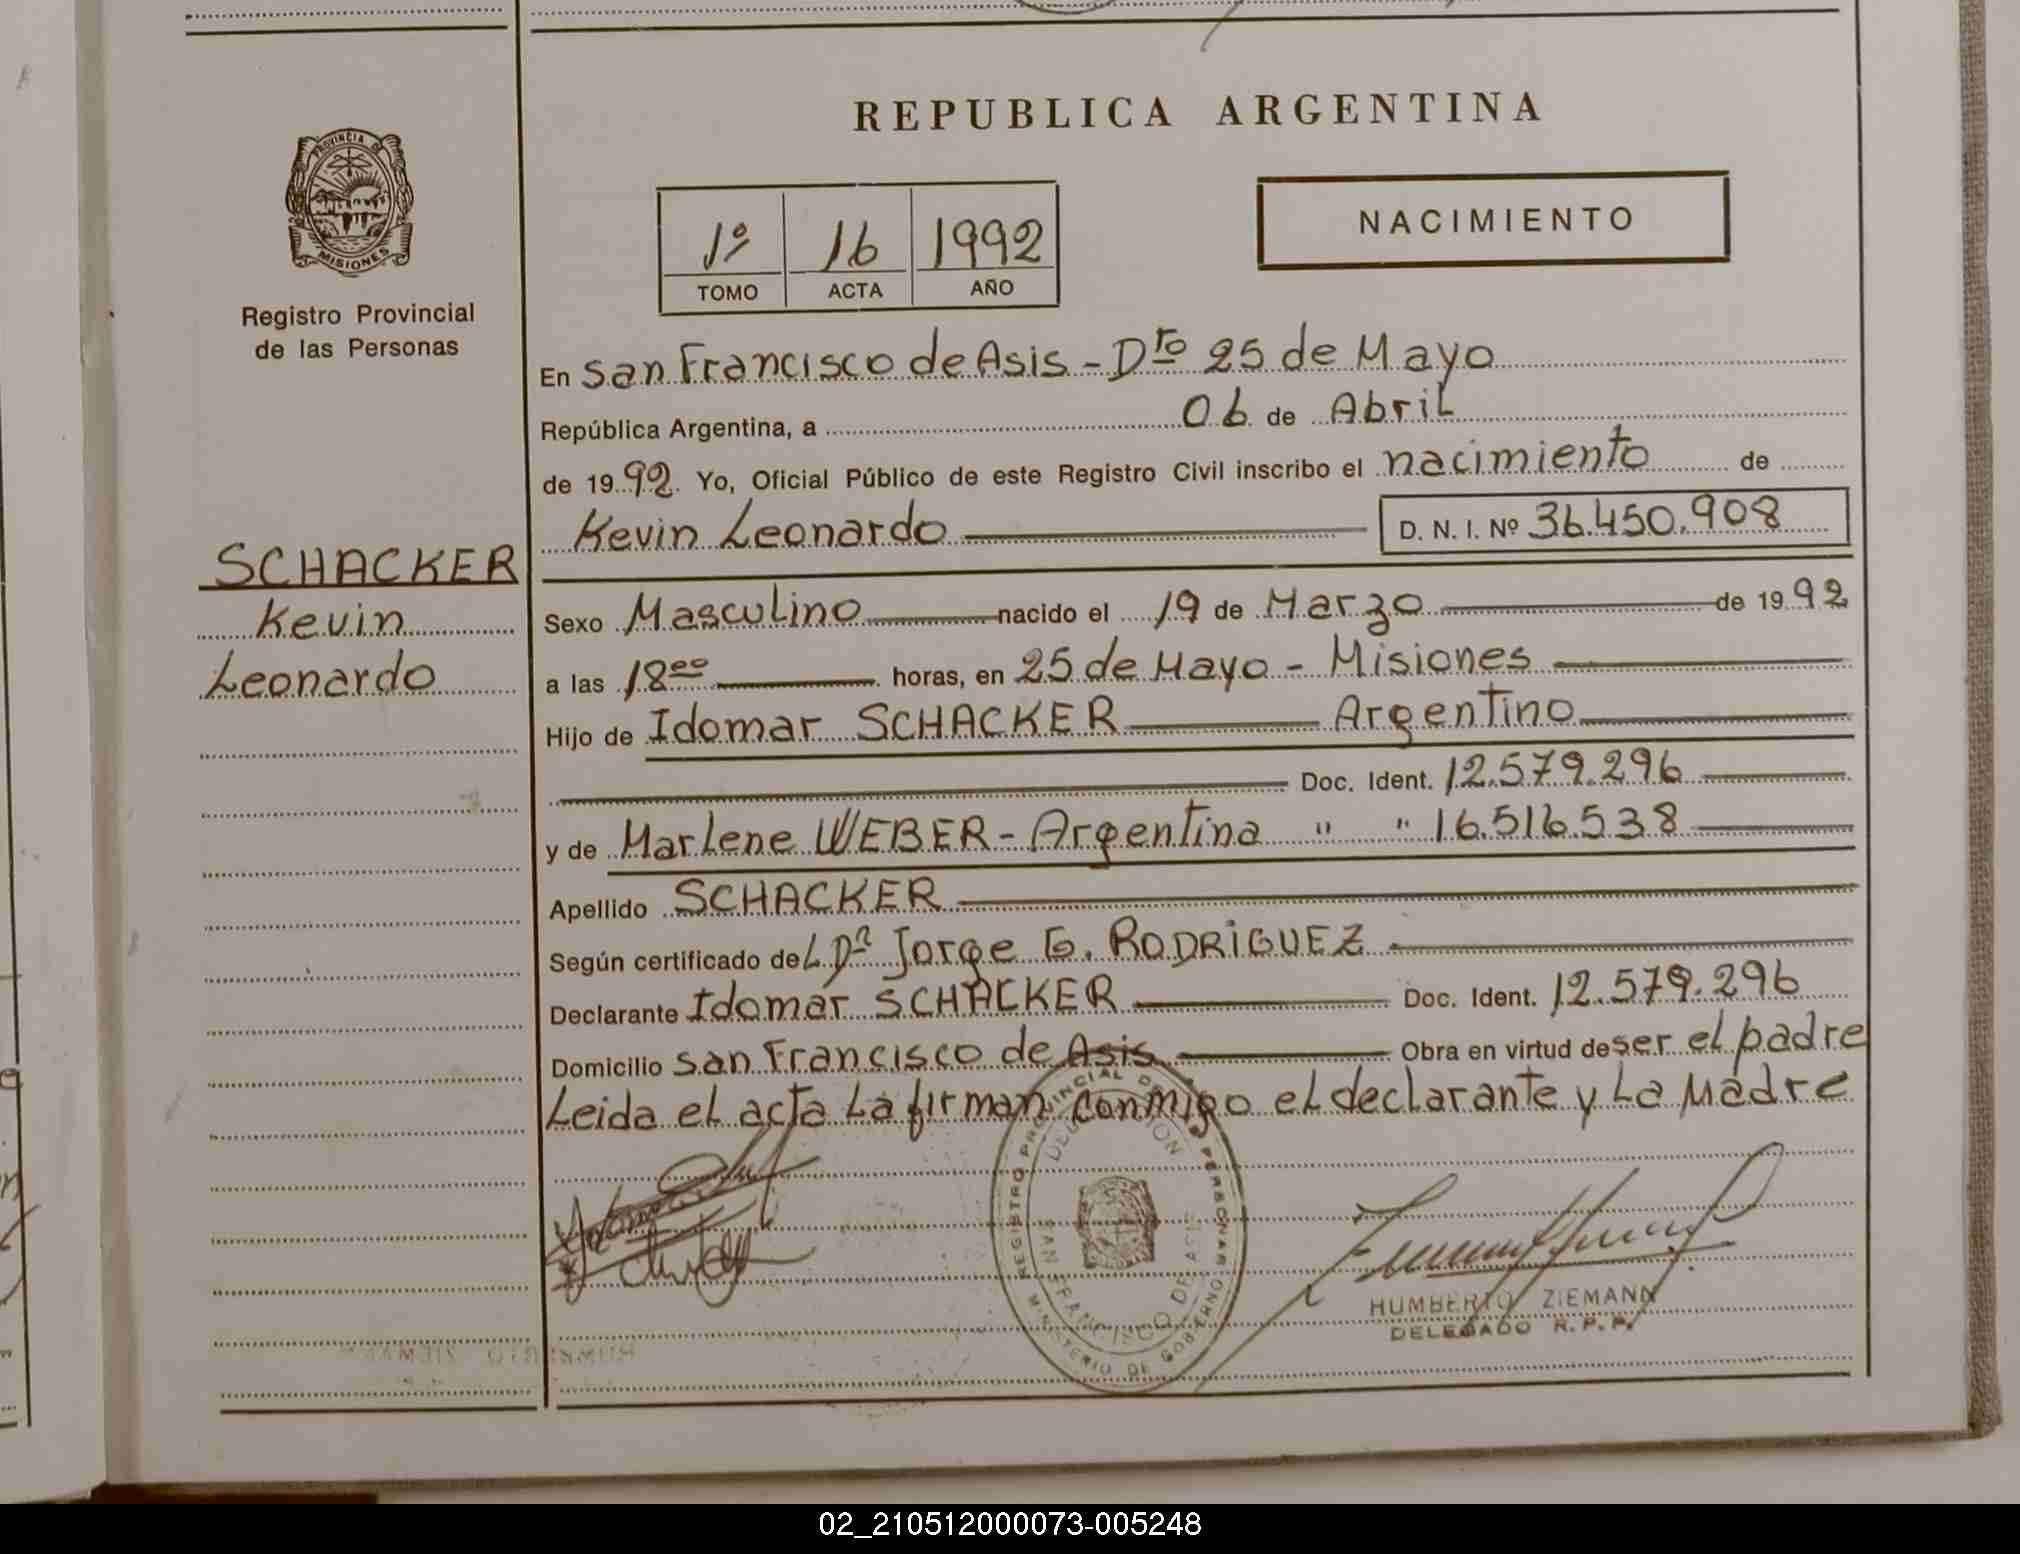 REPUBLICA ARGENTINA
PROVINCIA DE
MISIONES
Registro Provincial
de las Personas
1º 16 1992
TOMO ACTA AÑO
NACIMIENTO
En San Francisco de Asis - Dto 25 de Mayo
República Argentina, a 06 de Abril
de 1992. Yo, Oficial Público de este Registro Civil inscribo el nacimiento de
Kevin Leonardo D. N. I. Nº 36.450.908
SCHACKER
Kevin
Leonardo
Sexo Masculino nacido el 19 de Marzo de 1992
a las 18oo horas, en 25 de Mayo - Misiones
Hijo de Idomar SCHACKER Argentino
Doc. Ident. 12.579.296
y de Marlene WEBER - Argentina " " 16.516.538
Apellido SCHACKER
Según certificado del Dr Jorge G. RODRIGUEZ
Declarante Idomar SCHACKER Doc. Ident. 12.579.296
Domicilio San Francisco de Asis Obra en virtud de ser el padre
Leida el acta la firman conmigo el declarante y la Madre
REGISTRO PROVINCIAL DE LAS PERSONAS
DELEGACION
SAN FRANCISCO DE ASIS
MINISTERIO DE GOBIERNO
HUMBERTO ZIEMANN
DELEGADO R.P.P.
02_210512000073-005248